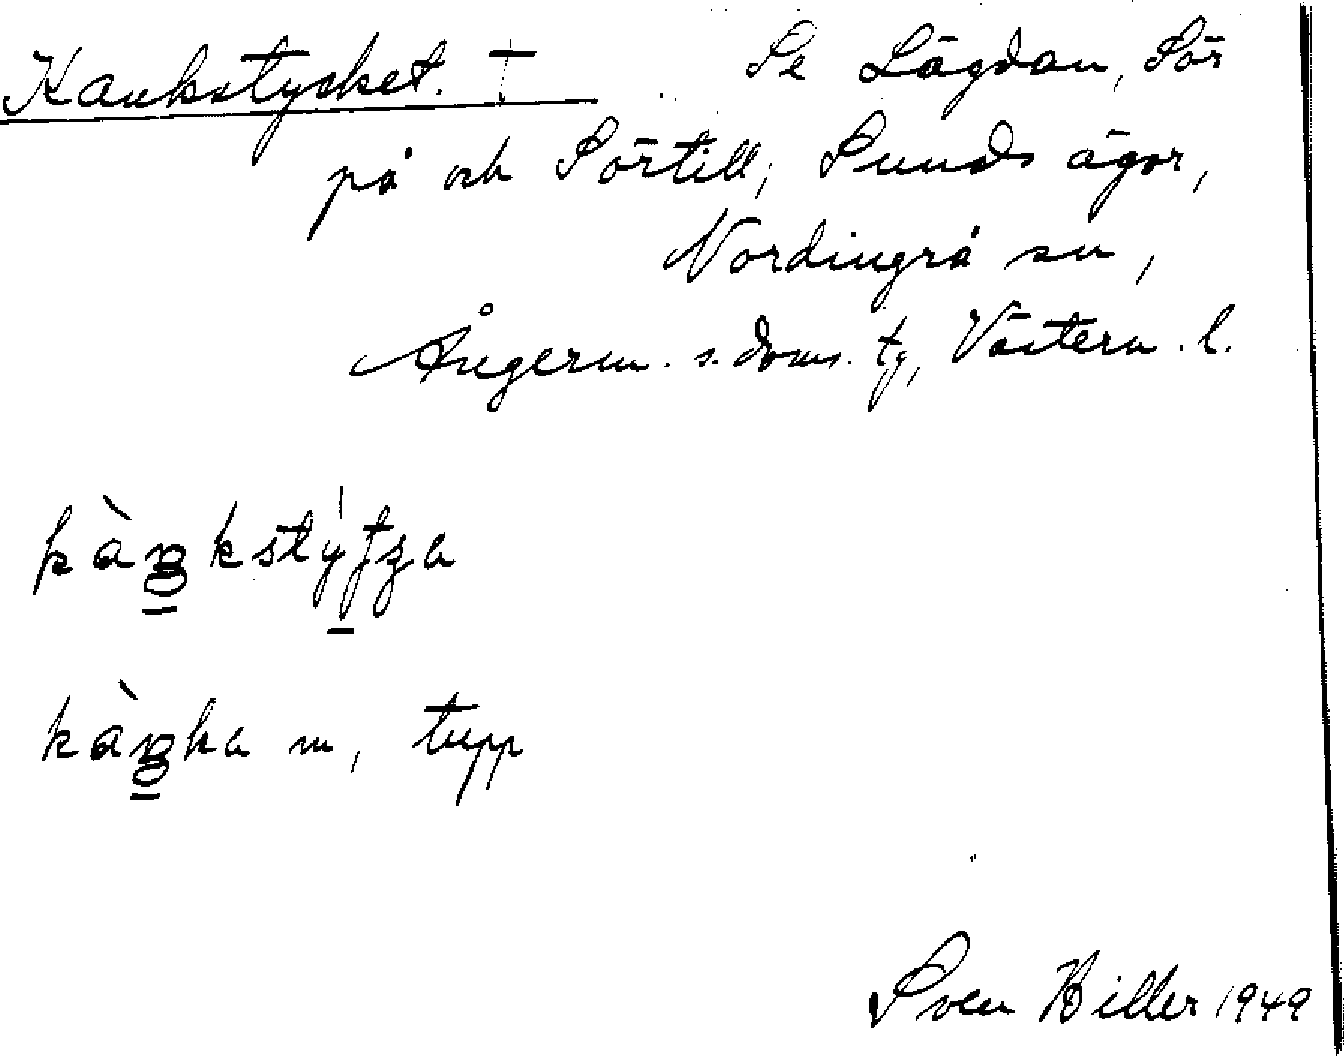 Kankstycket. T Se Lägdan, Sör
på och Sörtill; Sunds ägor,
Nordingrå sn,
Ångerm. s. doms. tg, Västern. l.
kàŋkstý
kàŋka m, tupp
Sven Hiller 1949